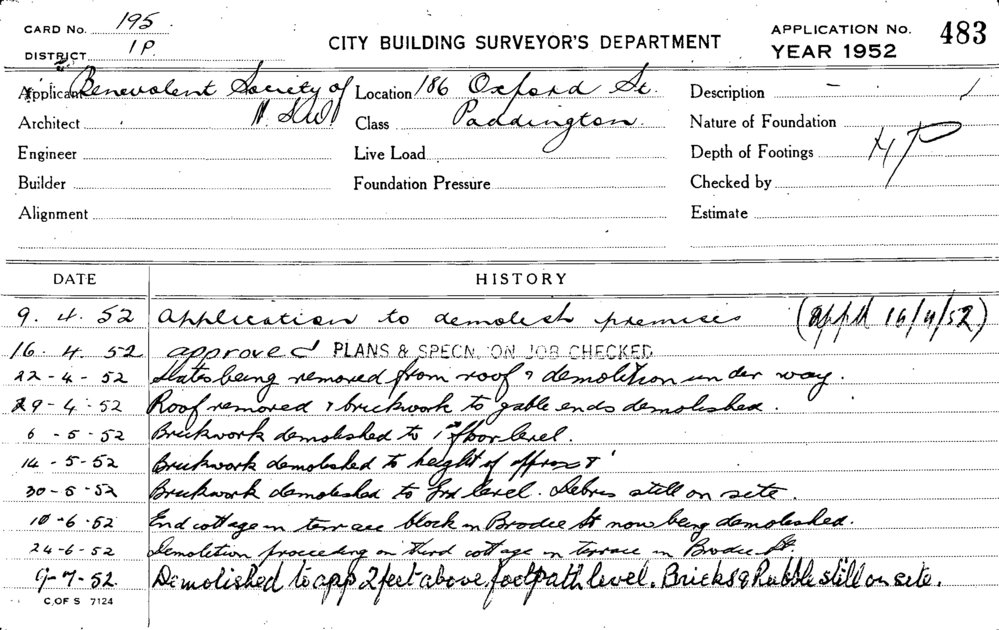 CARD NO. 195
DISTRICT 1P.
CITY BUILDING SURVEYOR'S DEPARTMENT
APPLICATION NO. 483
YEAR 1952
Applicant Benevolent Society of
Architect N.S.W.
Engineer
Builder
Alignment
Location 186 Oxford St.
Class Paddington.
Live Load
Foundation Pressure
Description - /
Nature of Foundation
Depth of Footings
Checked by
Estimate
DATE HISTORY
9. 4. 52 Application to demolish premises (App'd 16/4/52)
16. 4. 52 approved PLANS & SPECN. ON JOB CHECKED
22-4-52 Slates being removed from roof & demolition under way.
29-4-52 Roof removed & brickwork to gable ends demolished.
6-5-52 Brickwork demolished to 1st floor level.
14-5-52 Brickwork demolished to height of approx 8'
30-5-52 Brickwork demolished to Grd level. Debris still on site.
10-6-52 End cottage in terrace block in Brodie St now being demolished.
24-6-52 Demolition proceeding on third cottage in terrace in Brodie St.
9-7-52. Demolished to app 2 feet above footpath level. Bricks & Rubble still on site.
C.OF S 7124